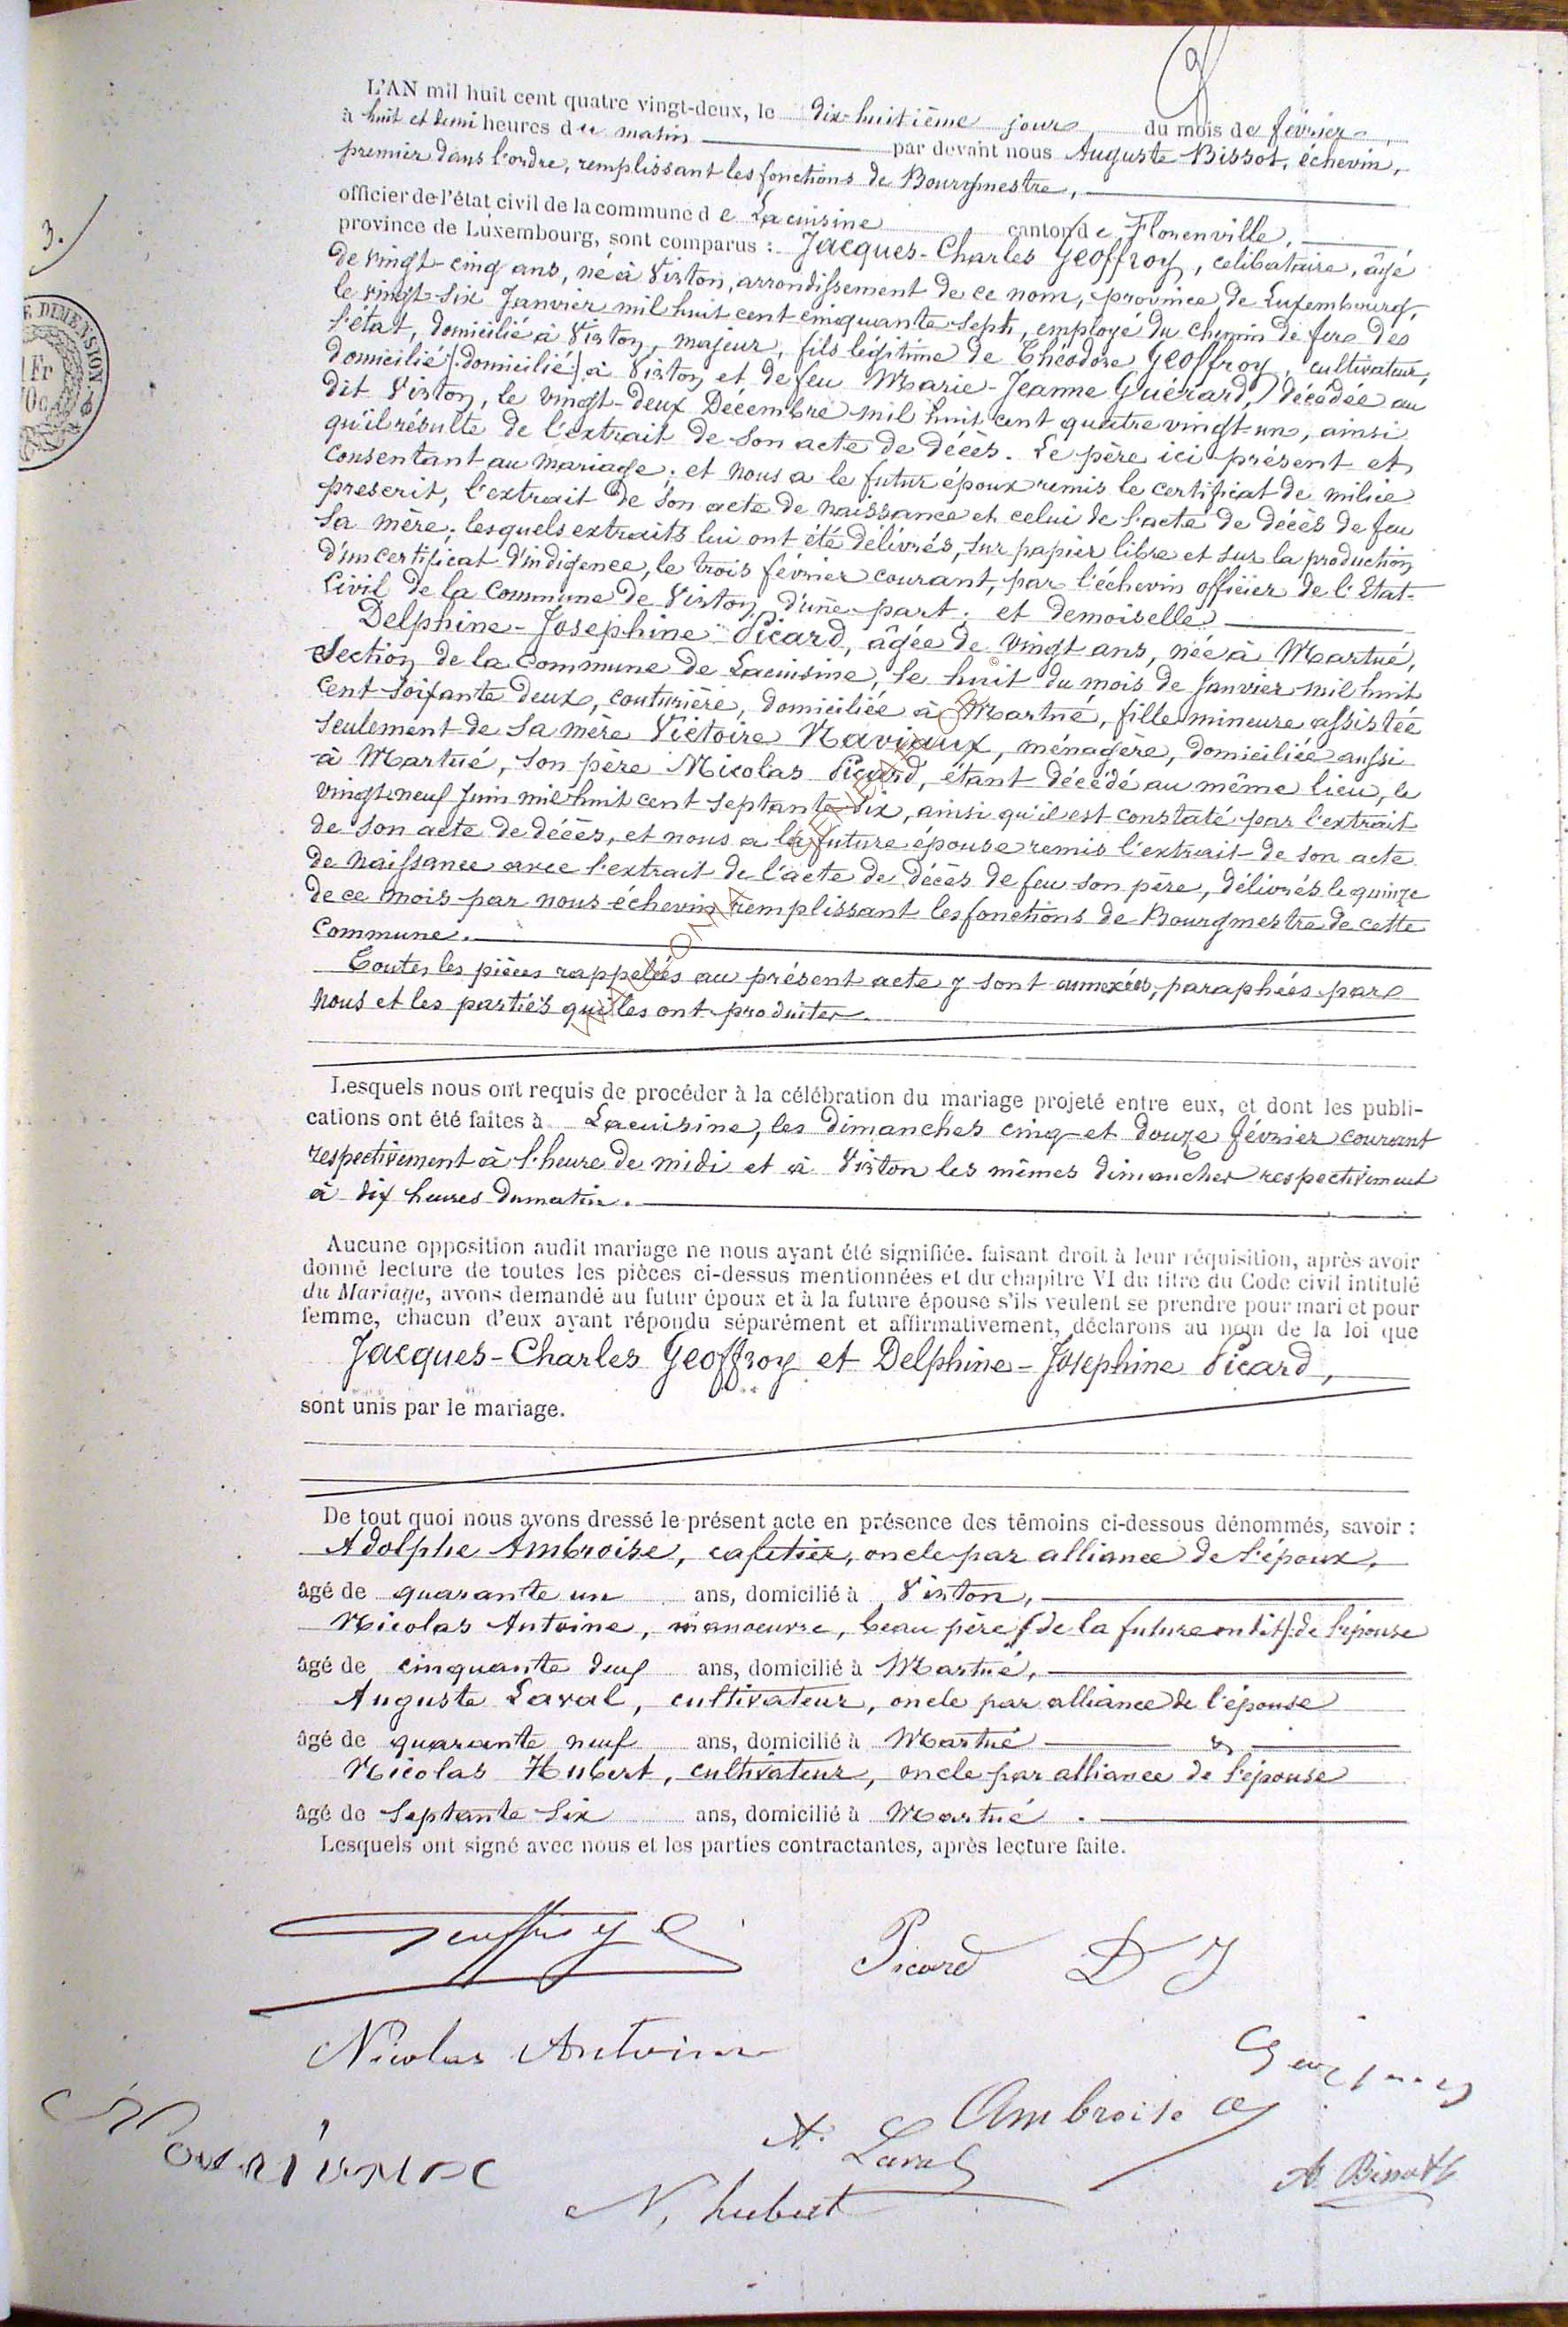 3.
E DIMENSION
1 Fr
L'AN mil huit cent quatre vingt-deux, le dix-huitième jour du mois de février,
à huit et demi heures du matin par devant nous Auguste Bissot, échevin,
premier dans l'ordre, remplissant les fonctions de Bourgmestre,
officier de l'état civil de la commune de Lacuisine canton de Florenville,
province de Luxembourg, sont comparus : Jacques-Charles Geoffroy, célibataire, âgé
de vingt-cinq ans, né à Virton, arrondissement de ce nom, province de Luxembourg,
le vingt-six Janvier mil huit cent cinquante-sept, employé du chemin de fer de
l'état, domicilié à Virton, majeur, fils légitime de Théodore Geoffroy, cultivateur,
domicilié [:domicilié:] à Virton et de feu Marie-Jeanne Guérard, décédée au
dit Virton, le vingt-deux Décembre mil huit cent quatre vingt-un, ainsi
qu'il résulte de l'extrait de son acte de décès. Le père ici présent et
consentant au mariage; et nous a le futur époux remis le certificat de milice
prescrit, l'extrait de son acte de naissance et celui de l'acte de décès de feu
sa mère; lesquels extraits lui ont été délivrés, sur papier libre et sur la production
d'un certificat d'indigence, le trois février courant, par l'échevin officier de l'Etat-
Civil de la Commune de Virton, d'une part; et demoiselle
Delphine-Josephine Picard, âgée de vingt ans, née à Martué,
Section de la commune de Lacuisine, le huit du mois de Janvier mil huit
cent soixante deux, couturière, domiciliée à Martué, fille mineure assistée
seulement de sa mère Victoire Naviaux, ménagère, domiciliée aussi
à Martué, son père Nicolas Picard, étant décédé au même lieu, le
vingt-neuf Juin mil huit cent septante-six, ainsi qu'il est constaté par l'extrait
de son acte de décès, et nous a la future épouse remis l'extrait de son acte
de naissance avec l'extrait de l'acte de décès de feu son père, délivrés le quinze
de ce mois par nous échevin remplissant les fonctions de Bourgmestre de cette
Commune.
Toutes les pièces rappelées au présent acte y sont annexées, paraphées par
nous et les parties qui les ont produites.
Lesquels nous ont requis de procéder à la célébration du mariage projeté entre eux, et dont les publi-
cations ont été faites à Lacuisine, les dimanches cinq et douze février courant
respectivement à l'heure de midi et à Virton les mêmes dimanches respectivement
à dix heures du matin.
Aucune opposition audit mariage ne nous ayant été signifiée. faisant droit à leur réquisition, après avoir
donné lecture de toutes les pièces ci-dessus mentionnées et du chapitre VI du titre du Code civil intitulé
du Mariage, avons demandé au futur époux et à la future épouse s'ils veulent se prendre pour mari et pour
femme, chacun d'eux ayant répondu séparément et affirmativement, déclarons au nom de la loi que
Jacques-Charles Geoffroy et Delphine-Josephine Picard,
sont unis par le mariage.
De tout quoi nous avons dressé le présent acte en présence des témoins ci-dessous dénommés, savoir :
Adolphe Ambroise, cafetier, oncle par alliance de l'époux,
âgé de quarante un ans, domicilié à Virton,
Nicolas Antoine, manoeuvre, beau père [:de la future ondit:] de l'épouse
âgé de cinquante deux ans, domicilié à Martué,
Auguste Laval, cultivateur, oncle par alliance de l'épouse
âgé de quarante neuf ans, domicilié à Martué &
Nicolas Hubert, cultivateur, oncle par alliance de l'épouse
âgé de Septante Six ans, domicilié à Martué.
Lesquels ont signé avec nous et les parties contractantes, après lecture faite.
Geoffroy
Picard D J
Nicolas Antoine
Ambroise A
A. Laval
N, hubert
A. Bissot